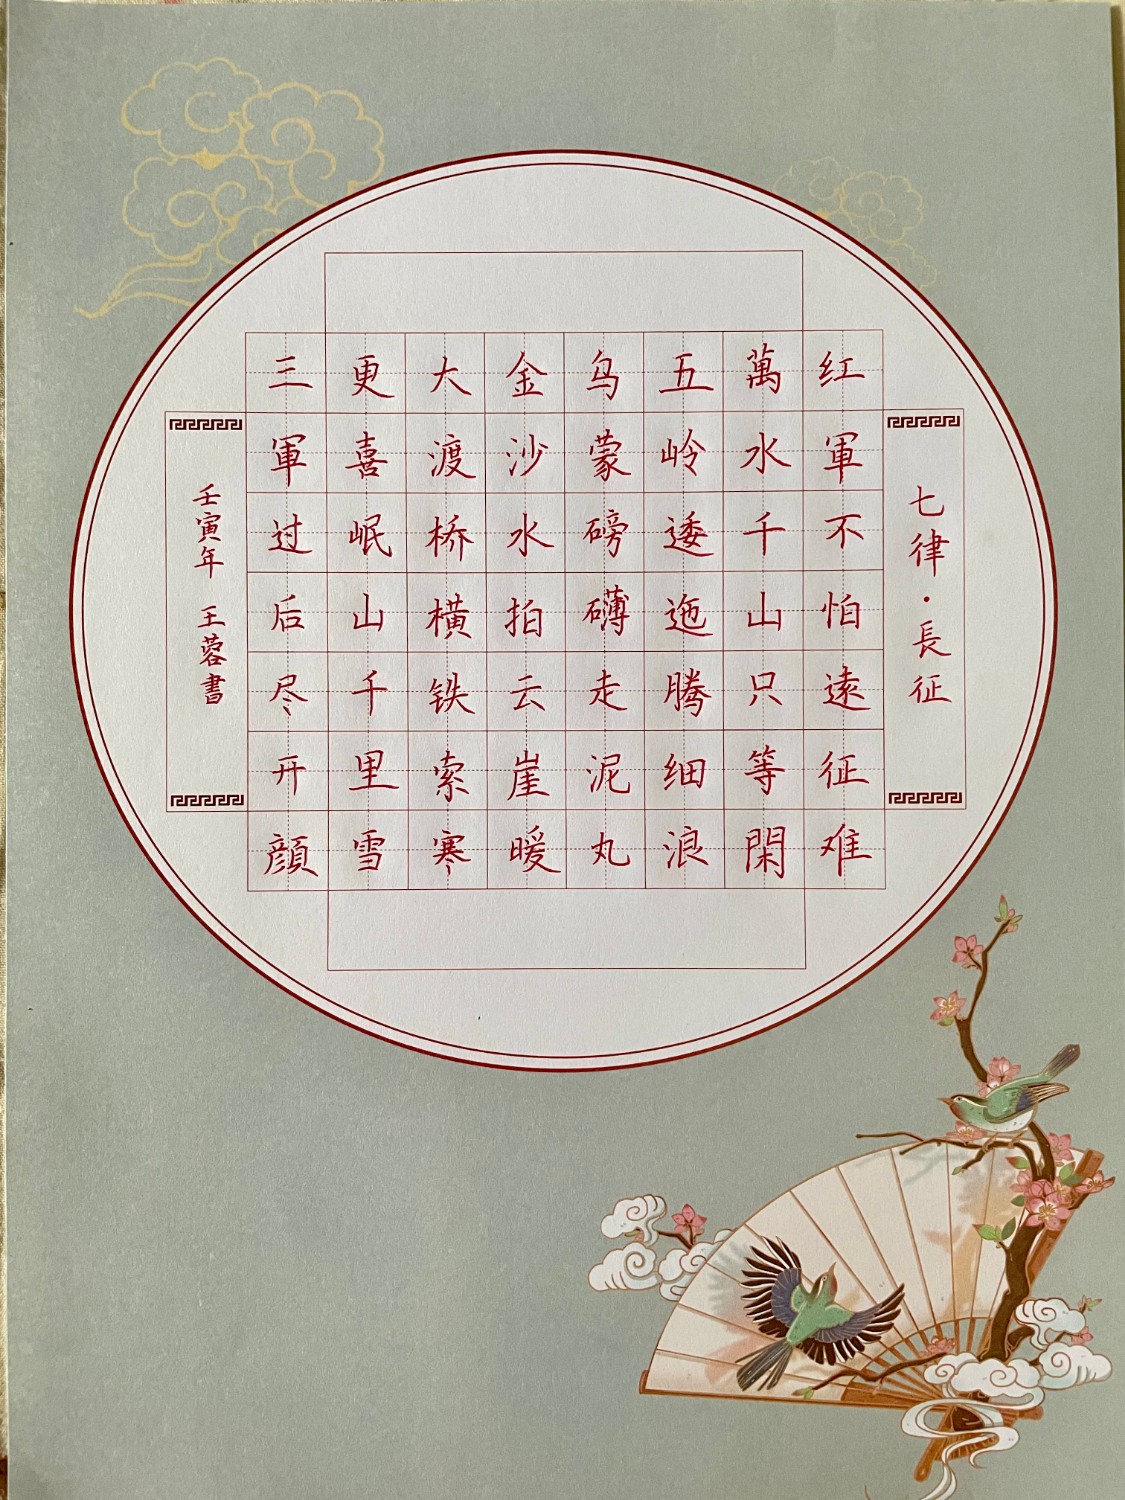 七律·長征
红軍不怕遠征难
萬水千山只等閑
五岭逶迤腾细浪
乌蒙磅礴走泥丸
金沙水拍云崖暖
大渡桥横铁索寒
更喜岷山千里雪
三軍过后尽开顔
壬寅年 王蓉書